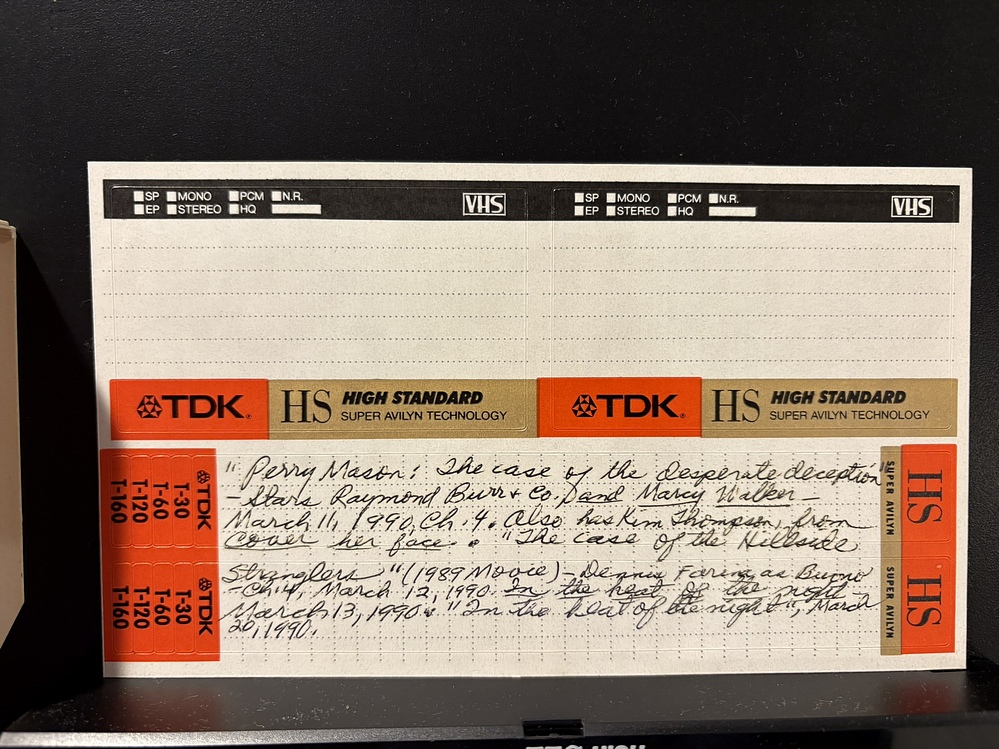 SP MONO PCM N.R.
EP STEREO HQ
VHS
SP MONO PCM N.R.
EP STEREO HQ
VHS
TDK HS HIGH STANDARD
SUPER AVILYN TECHNOLOGY
TDK HS HIGH STANDARD
SUPER AVILYN TECHNOLOGY
TDK
T-30
T-60
T-120
T-160
TDK
T-30
T-60
T-120
T-160
" Perry Mason: The case of the desperate deception"
- Stars Raymond Burr & Co, and Marcy Walker -
March 11, 1990, Ch. 4. Also has Kim Thompson, from
Cover her face. "The case of the Hillside
Stranglers" (1989 Movie) - Dennis Farina as Buono
- Ch 4, March 12, 1990. In the heat of the night
March 13, 1990. "In the heat of the night", March
20, 1990.
SUPER AVILYN HS
SUPER AVILYN HS